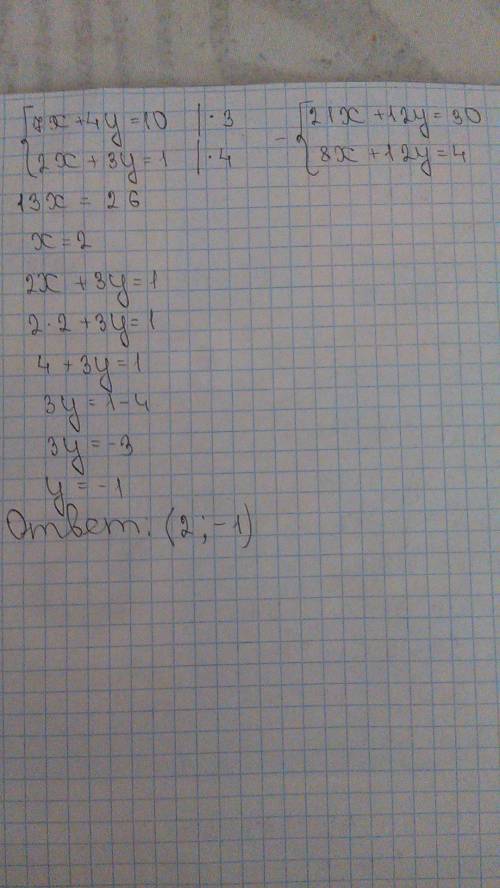 7x + 4y = 10 | · 3 - 21x + 12y = 30
2x + 3y = 1 | · 4 8x + 12y = 4
13x = 26
x = 2
2x + 3y = 1
2 · 2 + 3y = 1
4 + 3y = 1
3y = 1 - 4
3y = -3
y = -1
Ответ. (2; -1)